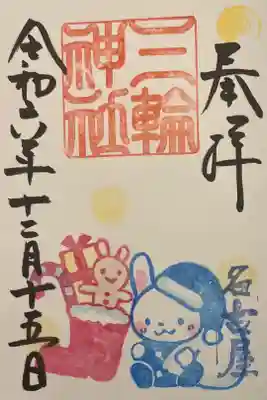 奉拝
三輪神社
名古屋
令和六年十二月十五日